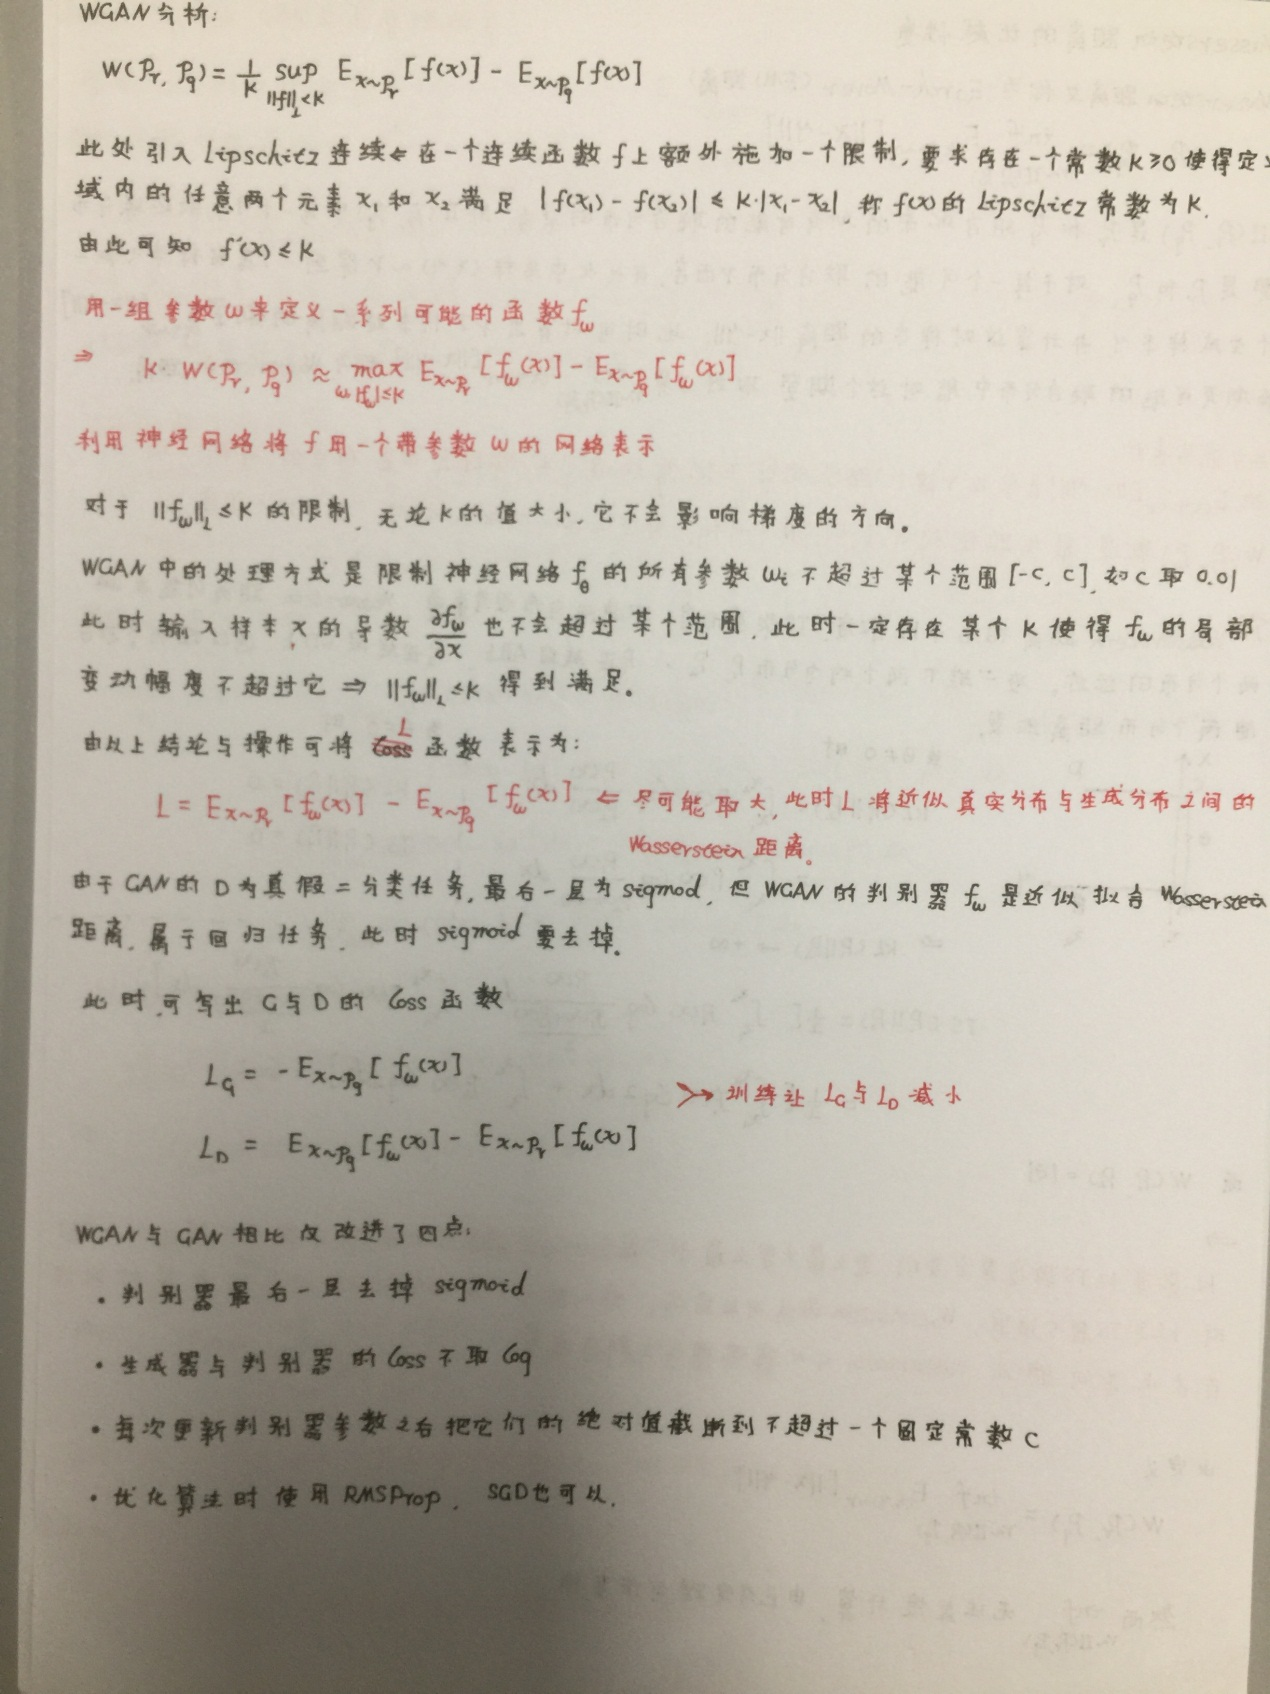 WGAN 分析:
W(Pr, Pg) = 1/K sup_{||f||L<K} E_{x~Pr}[f(x)] - E_{x~Pg}[f(x)]
此处引入 Lipschitz 连续 ⇐ 在一个连续函数 f 上额外施加一个限制, 要求存在一个常数 K≥0 使得定义
域内的任意两个元素 x₁ 和 x₂ 满足 |f(x₁) - f(x₂)| ≤ K·|x₁-x₂|, 称 f(x) 的 Lipschitz 常数为 K.
由此可知 f'(x) ≤ K
用一组参数 ω 来定义一系列可能的函数 fω
⇒ K·W(Pr, Pg) ≈ max_{ω,|fω|≤K} E_{x~Pr}[fω(x)] - E_{x~Pg}[fω(x)]
利用神经网络将 f 用一个带参数 ω 的网络表示
对于 ||fω||L ≤ K 的限制, 无论 K 的值大小, 它不会影响梯度的方向。
WGAN 中的处理方式是限制神经网络 fθ 的所有参数 ωi 不超过某个范围 [-c, c], 如 c 取 0.01
此时输入样本 x 的导数 ∂fω/∂x 也不会超过某个范围, 此时一定存在某个 K 使得 fω 的局部
变动幅度不超过它 ⇒ ||fω||L ≤ K 得到满足。
由以上结论与操作可将 L 函数表示为:
L = E_{x~Pr}[fω(x)] - E_{x~Pg}[fω(x)] ⇐ 尽可能取大, 此时 L 将近似真实分布与生成分布之间的
Wasserstein 距离。
由于 GAN 的 D 为真假二分类任务, 最后一层为 sigmod, 但 WGAN 的判别器 fω 是近似拟合 Wasserstein
距离, 属于回归任务, 此时 sigmoid 要去掉。
此时,可写出 G 与 D 的 Loss 函数
L_G = -E_{x~Pg}[fω(x)]
→ 训练让 L_G 与 L_D 减小
L_D = E_{x~Pg}[fω(x)] - E_{x~Pr}[fω(x)]
WGAN 与 GAN 相比仅改进了四点:
• 判别器最后一层去掉 sigmoid
• 生成器与判别器的 Loss 不取 log
• 每次更新判别器参数之后把它们的绝对值截断到不超过一个固定常数 C
• 优化算法时使用 RMSProp, SGD也可以.